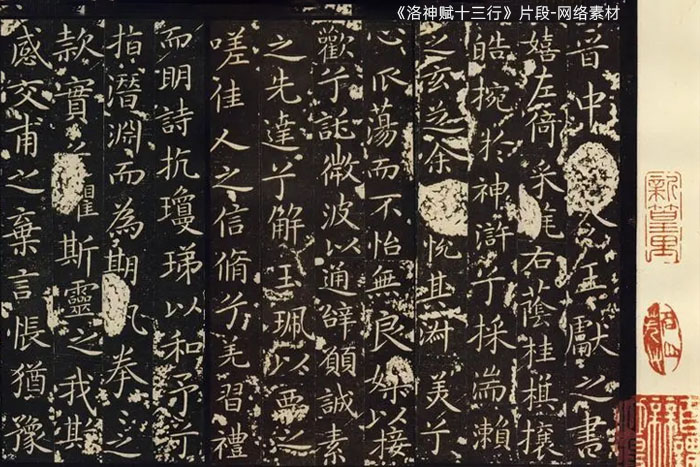 《洛神赋十三行》片段-网络素材
晉中令王獻之書
嬉左倚采旄右蔭桂旗攘
皓捥於神滸兮採湍瀨
之玄芝余悅其淑美兮
心振蕩而不怡無良媒以接
歡兮託微波以通辭願誠素
之先達兮解玉珮以要之
嗟佳人之信脩兮羌習禮
而明詩抗瓊珶以和予兮
指潛淵而為期拳之
款實懼斯靈之我欺
感交甫之棄言悵猶豫